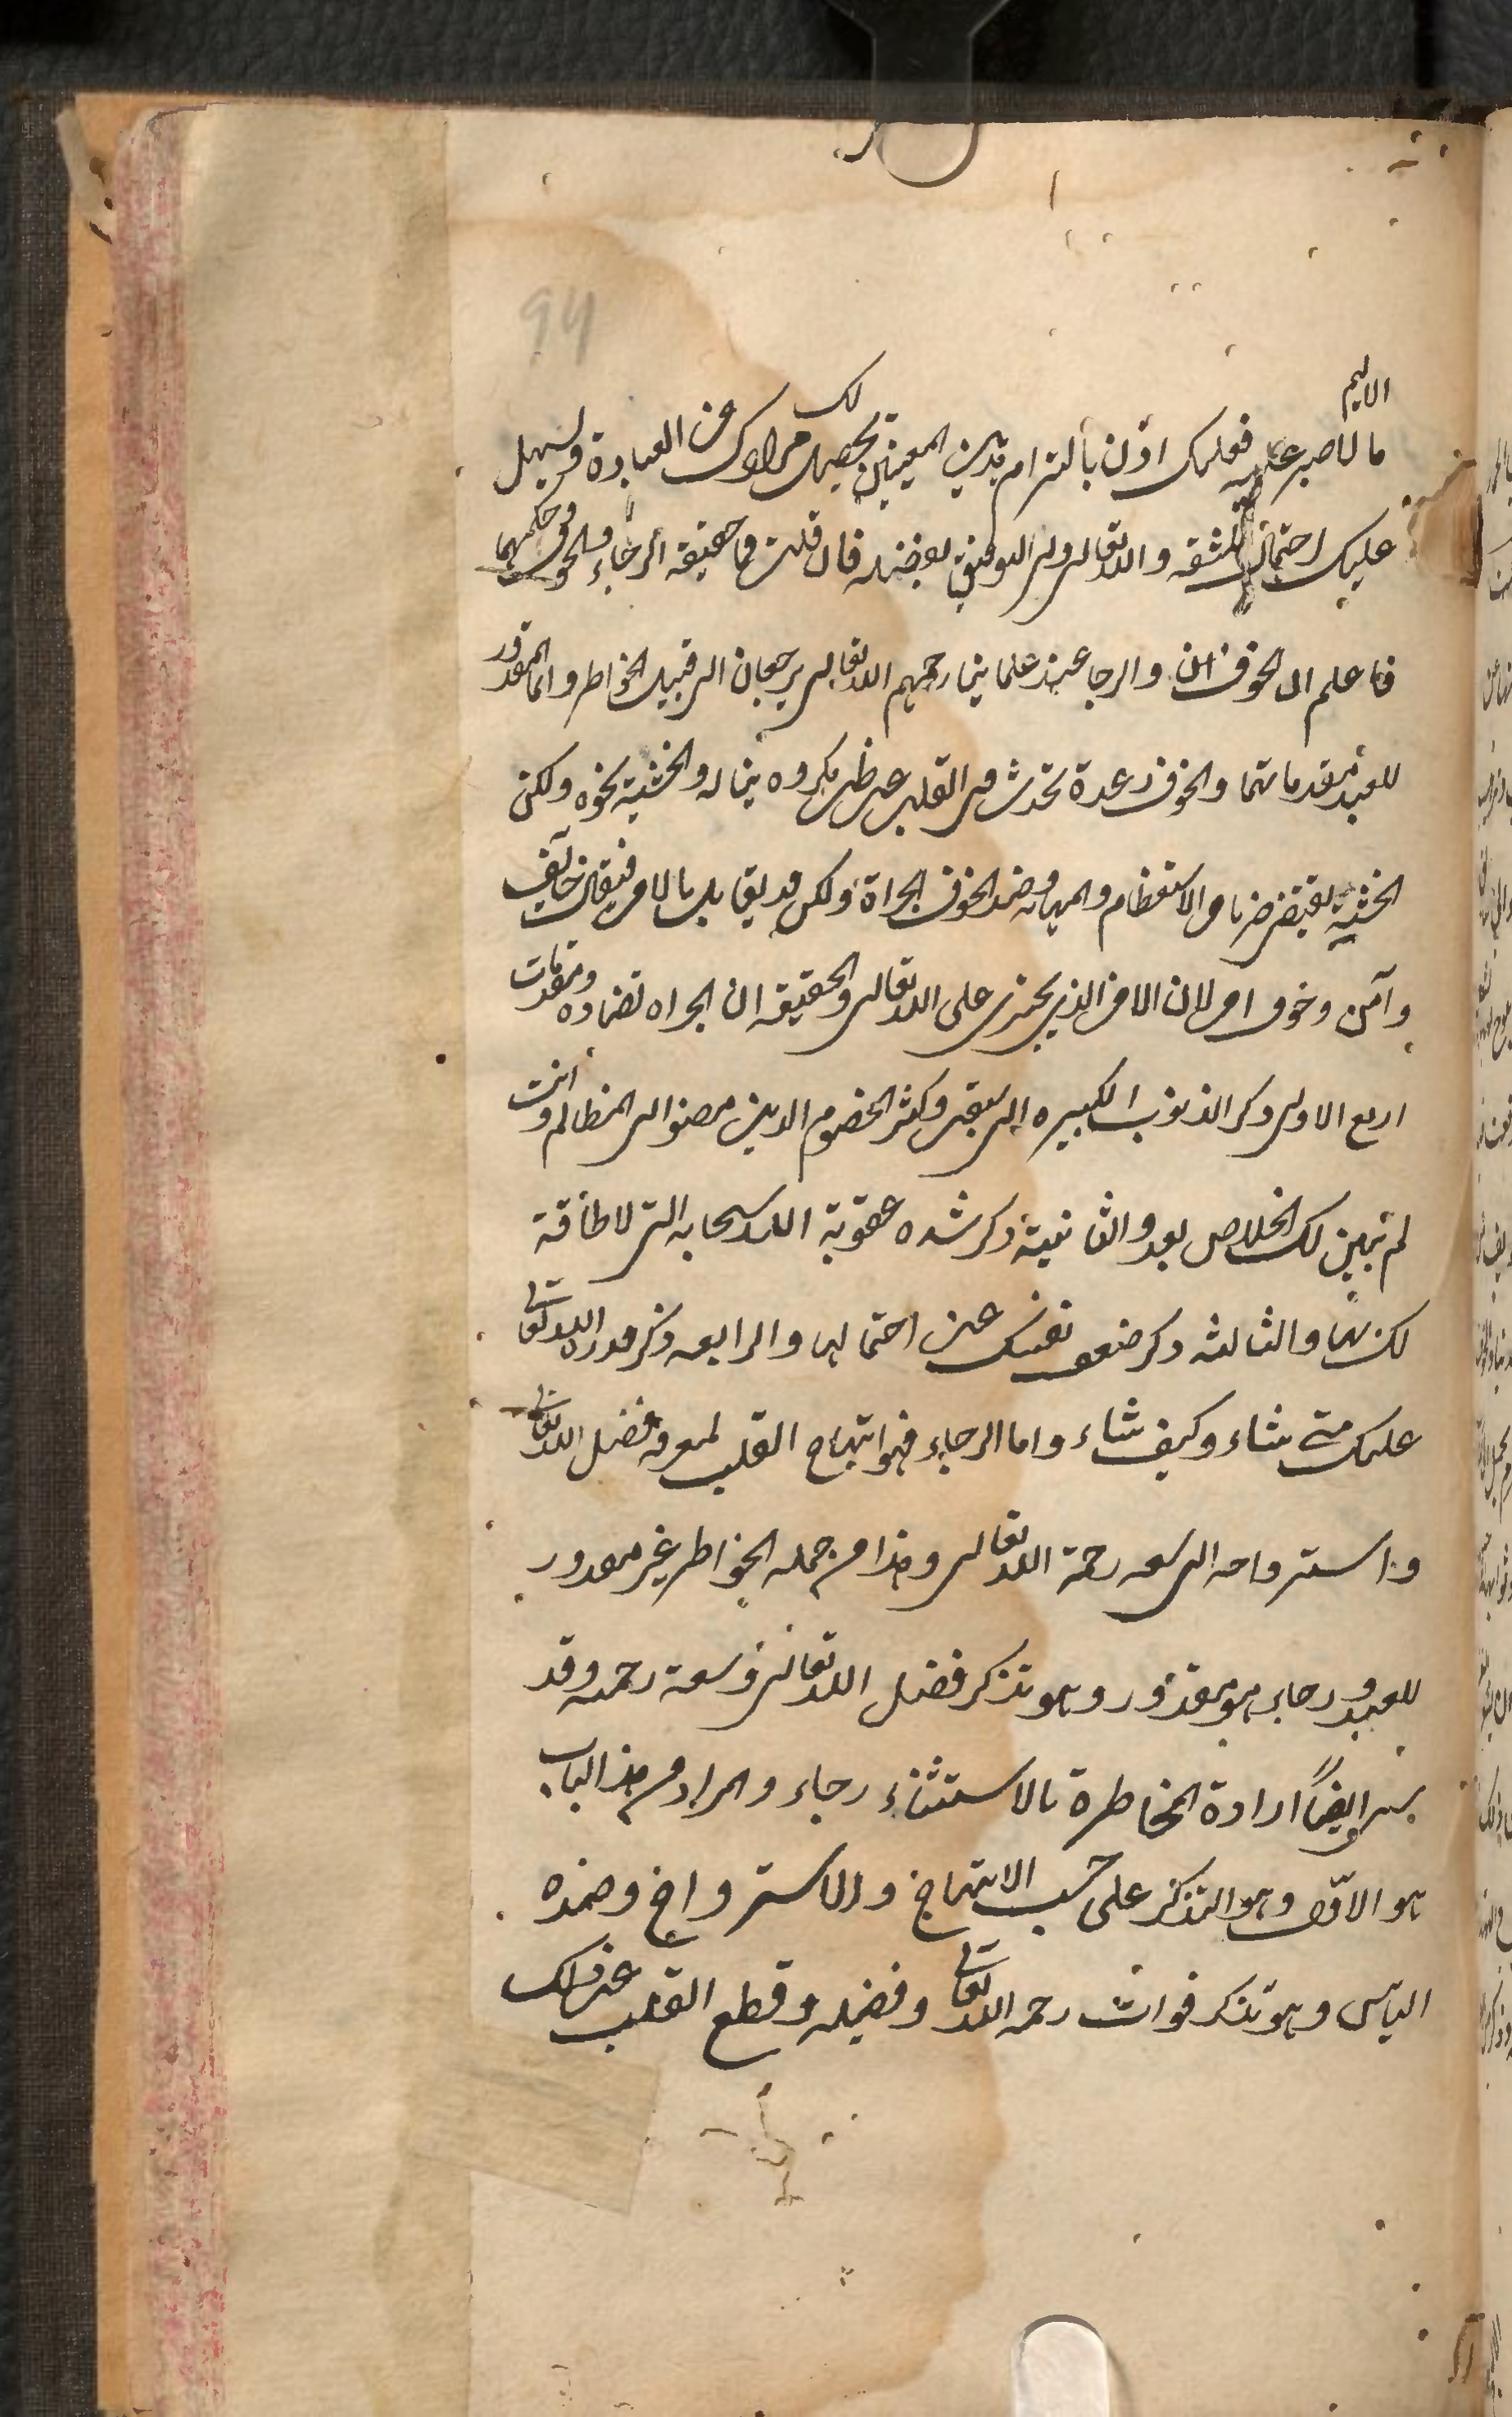 94
الاليم
ما لا صبر عليه فعليك اذن بالتزام هذين المعينين يحصل لك مرادك من العبادة وتسهل
عليك احتمال المشقه والله تعالى ولى التوفيق بفضله فان قلت فما حقيقة الرجاء والخوف وحكمهما
فاعلم ان الخوف والرجا عند علماينا رحمهم الله تعالى يرجعان الى قبيل الخواطر وانما المقدور
للعبد مقدماتهما والخوف رعدة تحدث فى القلب عن ظن مكروه يناله والخشية نحوه ولكن
الخشية تقتضى ضربا من الاستعظام والمهابه وضد الخوف الجراة ولكن قد يقابل بالامن فيقال خائف
وآمن وخوف وامن لان الامن الذى يجترى على الله تعالى والحقيقه ان الجراه تضاده ومقدمات
اربع الاولى ذكر الذنوب الكبيره التى سبقت وكثر الخصوم الدين مضوا الى المظالم وانت
لم تبين لك الخلاص بعد والثانية ذكر شده عقوبة الله سبحانه التى لا طاقة
لك بها والثالثه ذكر ضعف نفسك عن احتمالها والرابعه ذكر قدرة الله تعالى
عليك متى شاء وكيف شاء واما الرجاء فهو ابتهاج القلب لمعرفه فضل الله تعالى
واسترواحه الى سعه رحمة الله تعالى وهذا من جمله الخواطر غير مقدور
للعبد ورجاء هو مقدور وهو تذكر فضل الله تعالى وسعة رحمته وقد
يسمى ايضاً ارادة المخاطرة بالاستثناء رجاء والمراد من هذا الباب
هو الاوّل وهو التذكر على حسب الابتهاج والاسترواح وضده
الياس وهو تذكر فوات رحمه الله تعالى وفضيله وقطع القلب عن ذلك